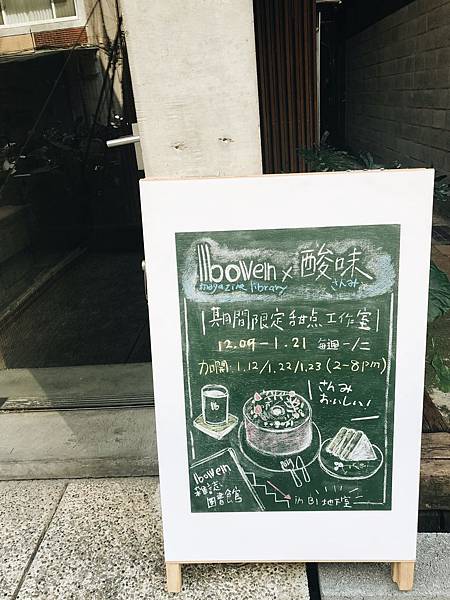 boven x 酸味
magazine library さんみ
期間限定甜点工作室
12.09－1.21 每週一/二
加開:1.12/1.22/1.23 (2-8pm)
さんみ
おいしい!
boven
雜誌
圖書館
in B1 地下室